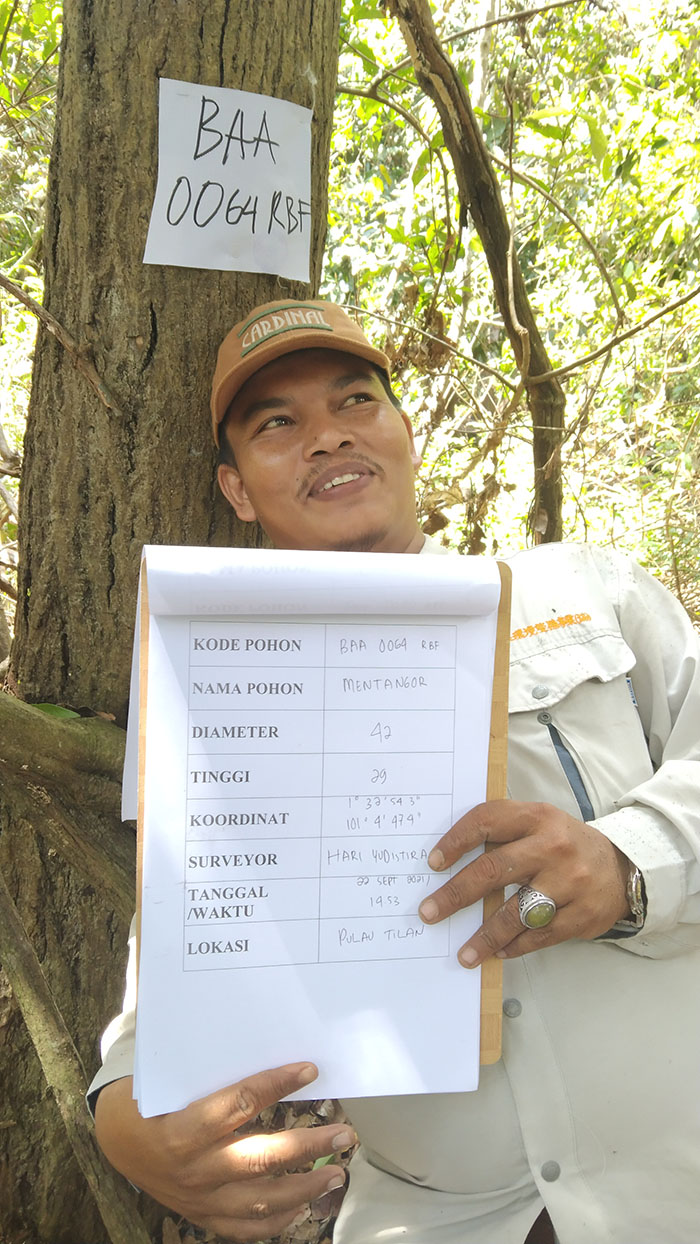 BAA
0064 RBF
CARDINAL
KODE POHON BAA 0064 RBF
NAMA POHON MENTANGOR
DIAMETER 42
TINGGI 29
1° 32' 54 3"
KOORDINAT 101° 4' 47 4"
SURVEYOR HARI YUDISTIRA
TANGGAL 22 SEPT 2021/
/WAKTU 14:53
LOKASI PULAU TILAN